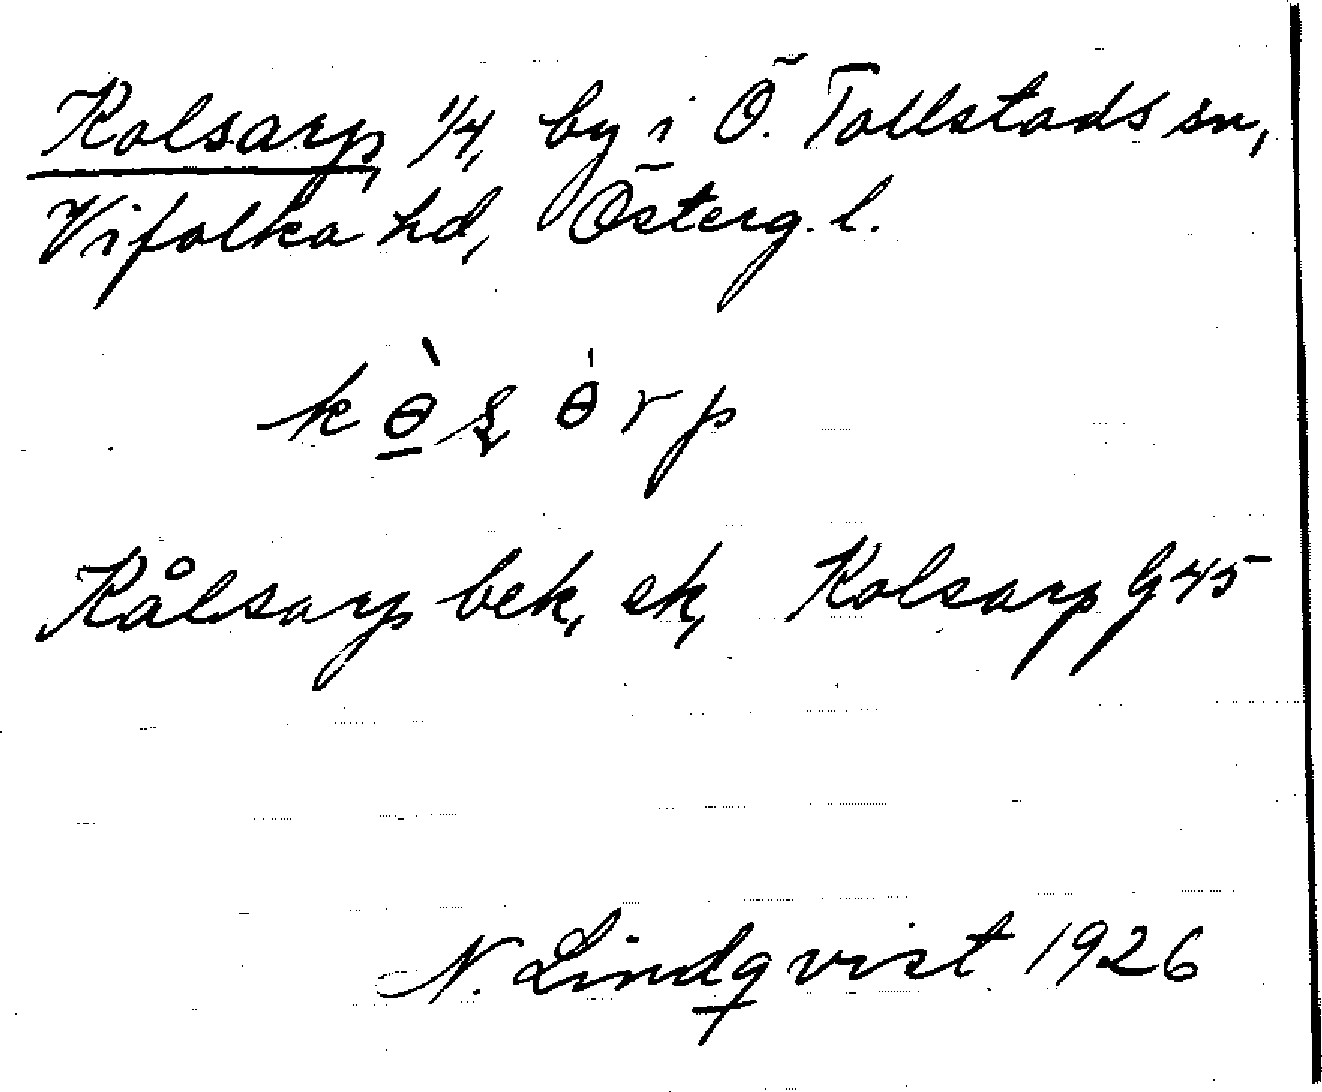 Kolsarp 1/4, by i Ö. Tollstads sn,
Vifolka hd, Österg. l.
kɵ̠̀ʂɵ̍rp
Kålsarp bek, ek, Kolsarp G45
N. Lindqvist 1926